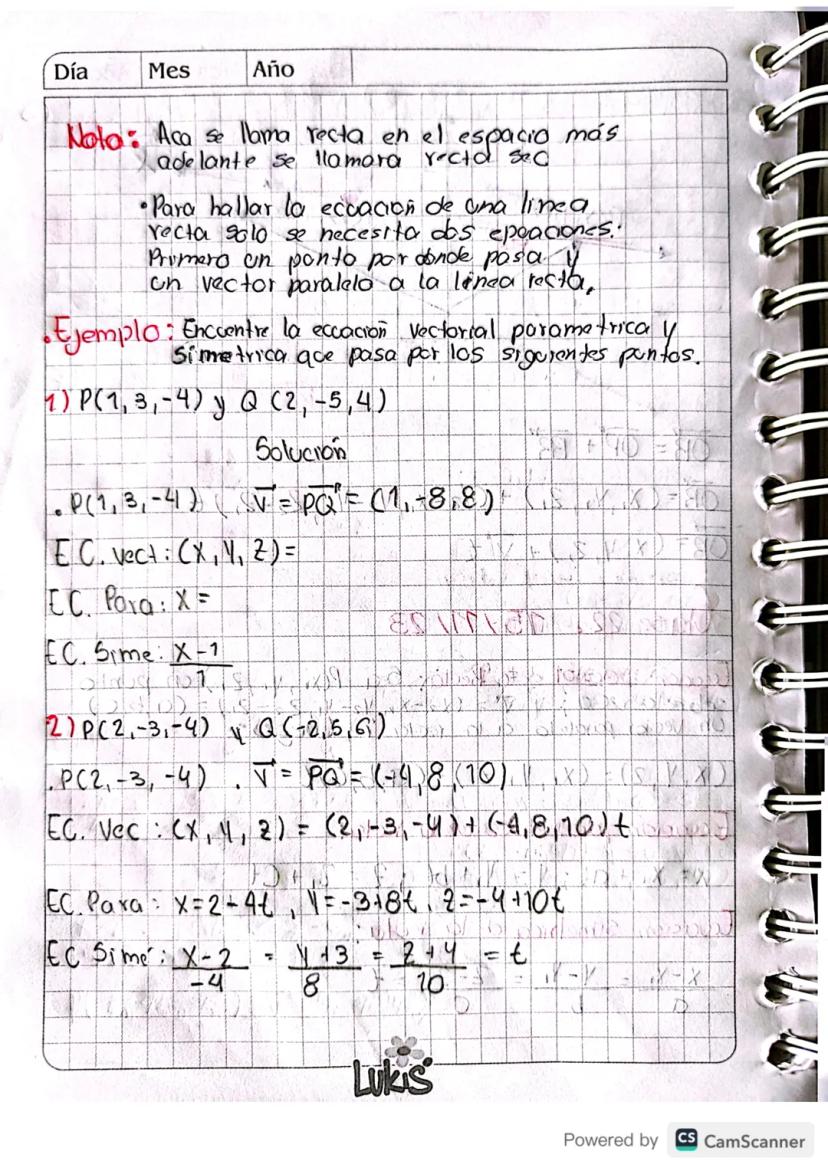 Día Mes Año
Nota: Aca se llama recta en el espacio más
adelante se llamara recta sec
•Para hallar la ecuación de una linea
recta solo se necesita dos epoaciones:
Primero un punto por donde pasa y
un vector paralelo a la línea recta.
•Ejemplo: Encuentre la ecuación vectorial parametrica y
simetrica que pasa por los siguientes puntos.
1) P(1, 3, -4) y Q (2, -5, 4)
Solución
. P(1, 3, -4) V⃗ = PQ⃗ = (1, -8, 8)
EC. vect: (X, Y, Z) =
EC. Para: X =
EC. Sime: X-1/1
2) P(2, -3, -4) y Q(-2, 5, 6)
. P(2, -3, -4) . V⃗ = PQ⃗ = (-4, 8, 10)
EC. Vec : (X, Y, Z) = (2, -3, -4) + (-4, 8, 10) t
EC. Para: X=2-4t, Y=-3+8t, Z=-4+10t
EC Sime: X-2/-4 = Y+3/8 = Z+4/10 = t
LUKIS
Powered by CS CamScanner